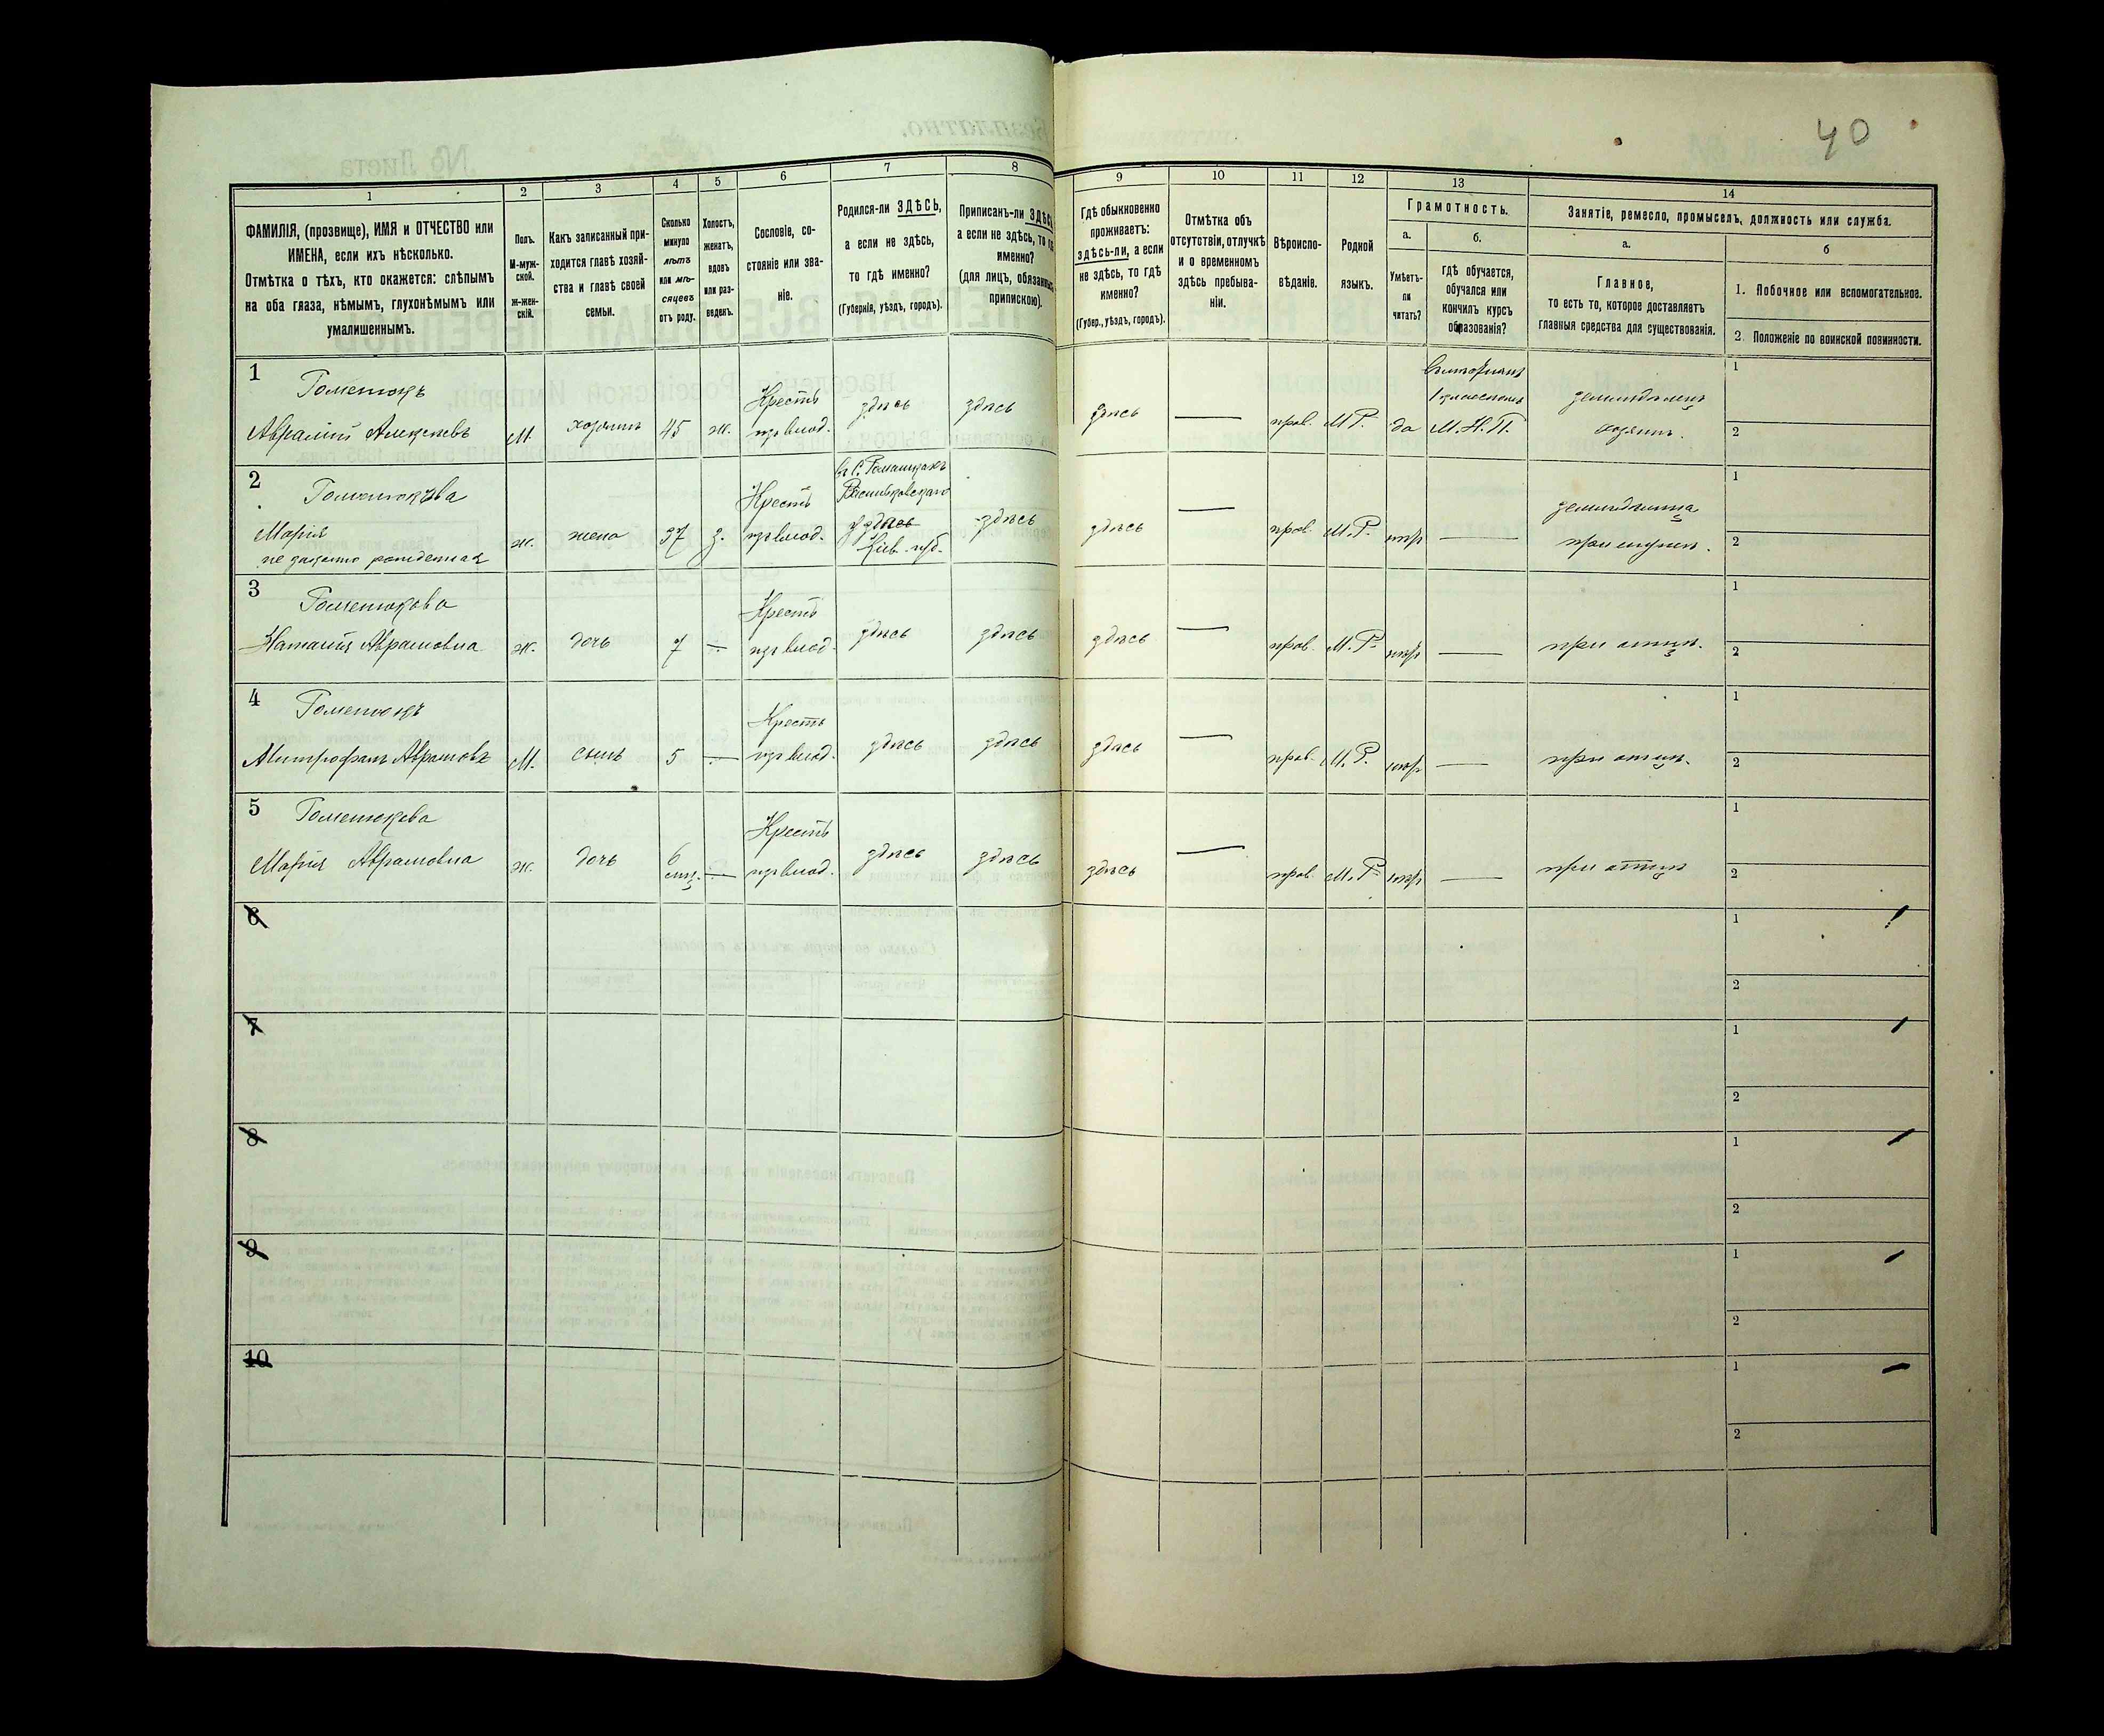 40
1
2
3
4
5
6
7
8
9
10
11
12
13
14
ФАМИЛІЯ, (прозвище), ИМЯ и ОТЧЕСТВО или
ИМЕНА, если ихъ нѣсколько.
Отмѣтка о тѣхъ, кто окажется: слѣпымъ
на оба глаза, нѣмымъ, глухонѣмымъ или
умалишеннымъ.
Полъ.
М-муж-
ской.
ж-жен-
скій.
Какъ записанный при-
ходится главѣ хозяй-
ства и главѣ своей
семьи.
Сколько
минуло
лѣтъ
или мѣ-
сяцевъ
отъ роду.
Холостъ,
женатъ,
вдовъ
или раз-
веденъ.
Сословіе, со-
стояніе или зва-
ніе.
Родился-ли ЗДѢСЬ,
а если не здѣсь,
то гдѣ именно?
(Губернія, уѣздъ, городъ).
Приписанъ-ли ЗДѢСЬ
а если не здѣсь, то
именно?
(для лицъ, обязанных
припискою).
Гдѣ обыкновенно
проживаетъ:
здѣсь-ли, а если
не здѣсь, то гдѣ
именно?
(Губер., уѣздъ, городъ).
Отмѣтка объ
отсутствіи, отлучкѣ
и о временномъ
здѣсь пребыва-
ніи.
Вѣроиспо-
вѣданіе.
Родной
языкъ.
Грамотность.
а.
Умѣетъ-
ли
читать?
б.
гдѣ обучается,
обучался или
кончилъ курсъ
образованія?
Занятіе, ремесло, промыселъ, должность или служба.
а.
Главное,
то есть то, которое доставляетъ
главныя средства для существованія.
б
1. Побочное или вспомогательное.
2. Положеніе по воинской повинности.
1
Аврамій Алексѣевъ
М.
хозяинъ
45
ж.
Крестъ
изъ влад.
здѣсь
здѣсь
здѣсь
прав.
М. Р.
да
1 классномъ
М. Н. П.
земледѣлецъ
хозяинъ.
1
2
2
Марія
ж.
жена
37
з.
Крестъ
изъ влад.
Васильковскаго
здѣсь
Кіев. губ.
здѣсь
здѣсь
прав.
М. Р.
нѣтъ
1
2
3
Наталія Абрамовна
ж.
дочь
7
Крестъ
изъ влад.
здѣсь
здѣсь
здѣсь
прав.
М. Р.
нѣтъ
при отцѣ.
1
2
4
Митрофанъ Абрамовъ
М.
сынъ
5
Крестъ
изъ влад.
здѣсь
здѣсь
здѣсь
прав.
М. Р.
нѣтъ
при отцѣ.
1
2
5
Марія Абрамовна
ж.
дочь
6
мц.
Крестъ
изъ влад.
здѣсь
здѣсь
здѣсь
прав.
М. Р.
нѣтъ
при отцѣ
1
2
6
1
2
7
1
2
8
1
2
9
1
2
10
1
2